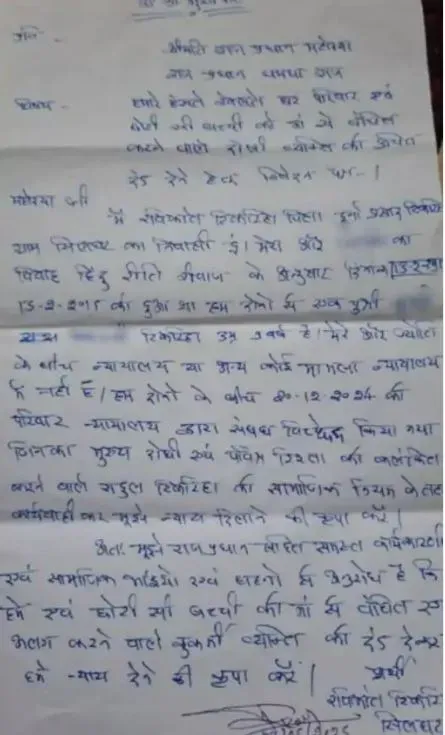 प्रति -
श्रीमति राज प्रधान महोदया
राज प्रधान धमधा राज
विषय - हमारे हंसते खेलते घर परिवार एवं
छोटी सी बच्ची को मां से वंचित
करने वाले दोषी व्यक्ति को उचित
दंड देने हेतु निवेदन पत्र - ।
महोदया जी
मैं रविकांत रिकरिहा पिता दुर्गा प्रसाद रिकरिहा
राज सिलघट का निवासी हूं। मेरा और का
विवाह हिंदू रीति रीवाज के अनुसार दिनांक
15-2-2015 को हुआ था हम दोनो से एक पुत्री
रिकरिहा उम्र वर्ष है। मेरे और
के बीच न्यायालय या अन्य कोई मामला न्यायालय
में नहीं है। हम दोनो के बीच 20-12-2024 को
परिवार न्यायालय द्वारा संबंध विच्छेद किया गया
जिनका मुख्य दोषी एवं पवित्र रिश्ता को कलंकित
करने वाले राहुल रिकरिहा को सामाजिक नियम के तहत
कार्यवाही कर मुझे न्याय दिलाने की कृपा करें।
अतः मुझे राजप्रधान सहित समस्त कार्यकारणी
एवं सामाजिक भाईयो एवं बहनो से अनुरोध है कि
हमे एवं छोटी सी बच्ची को मां से वंचित एवं
अलग करने वाले कुकर्मी व्यक्ति को दंड देकर
हमे न्याय देने की कृपा करें। प्रार्थी
रविकांत रिकरि
सिलघट